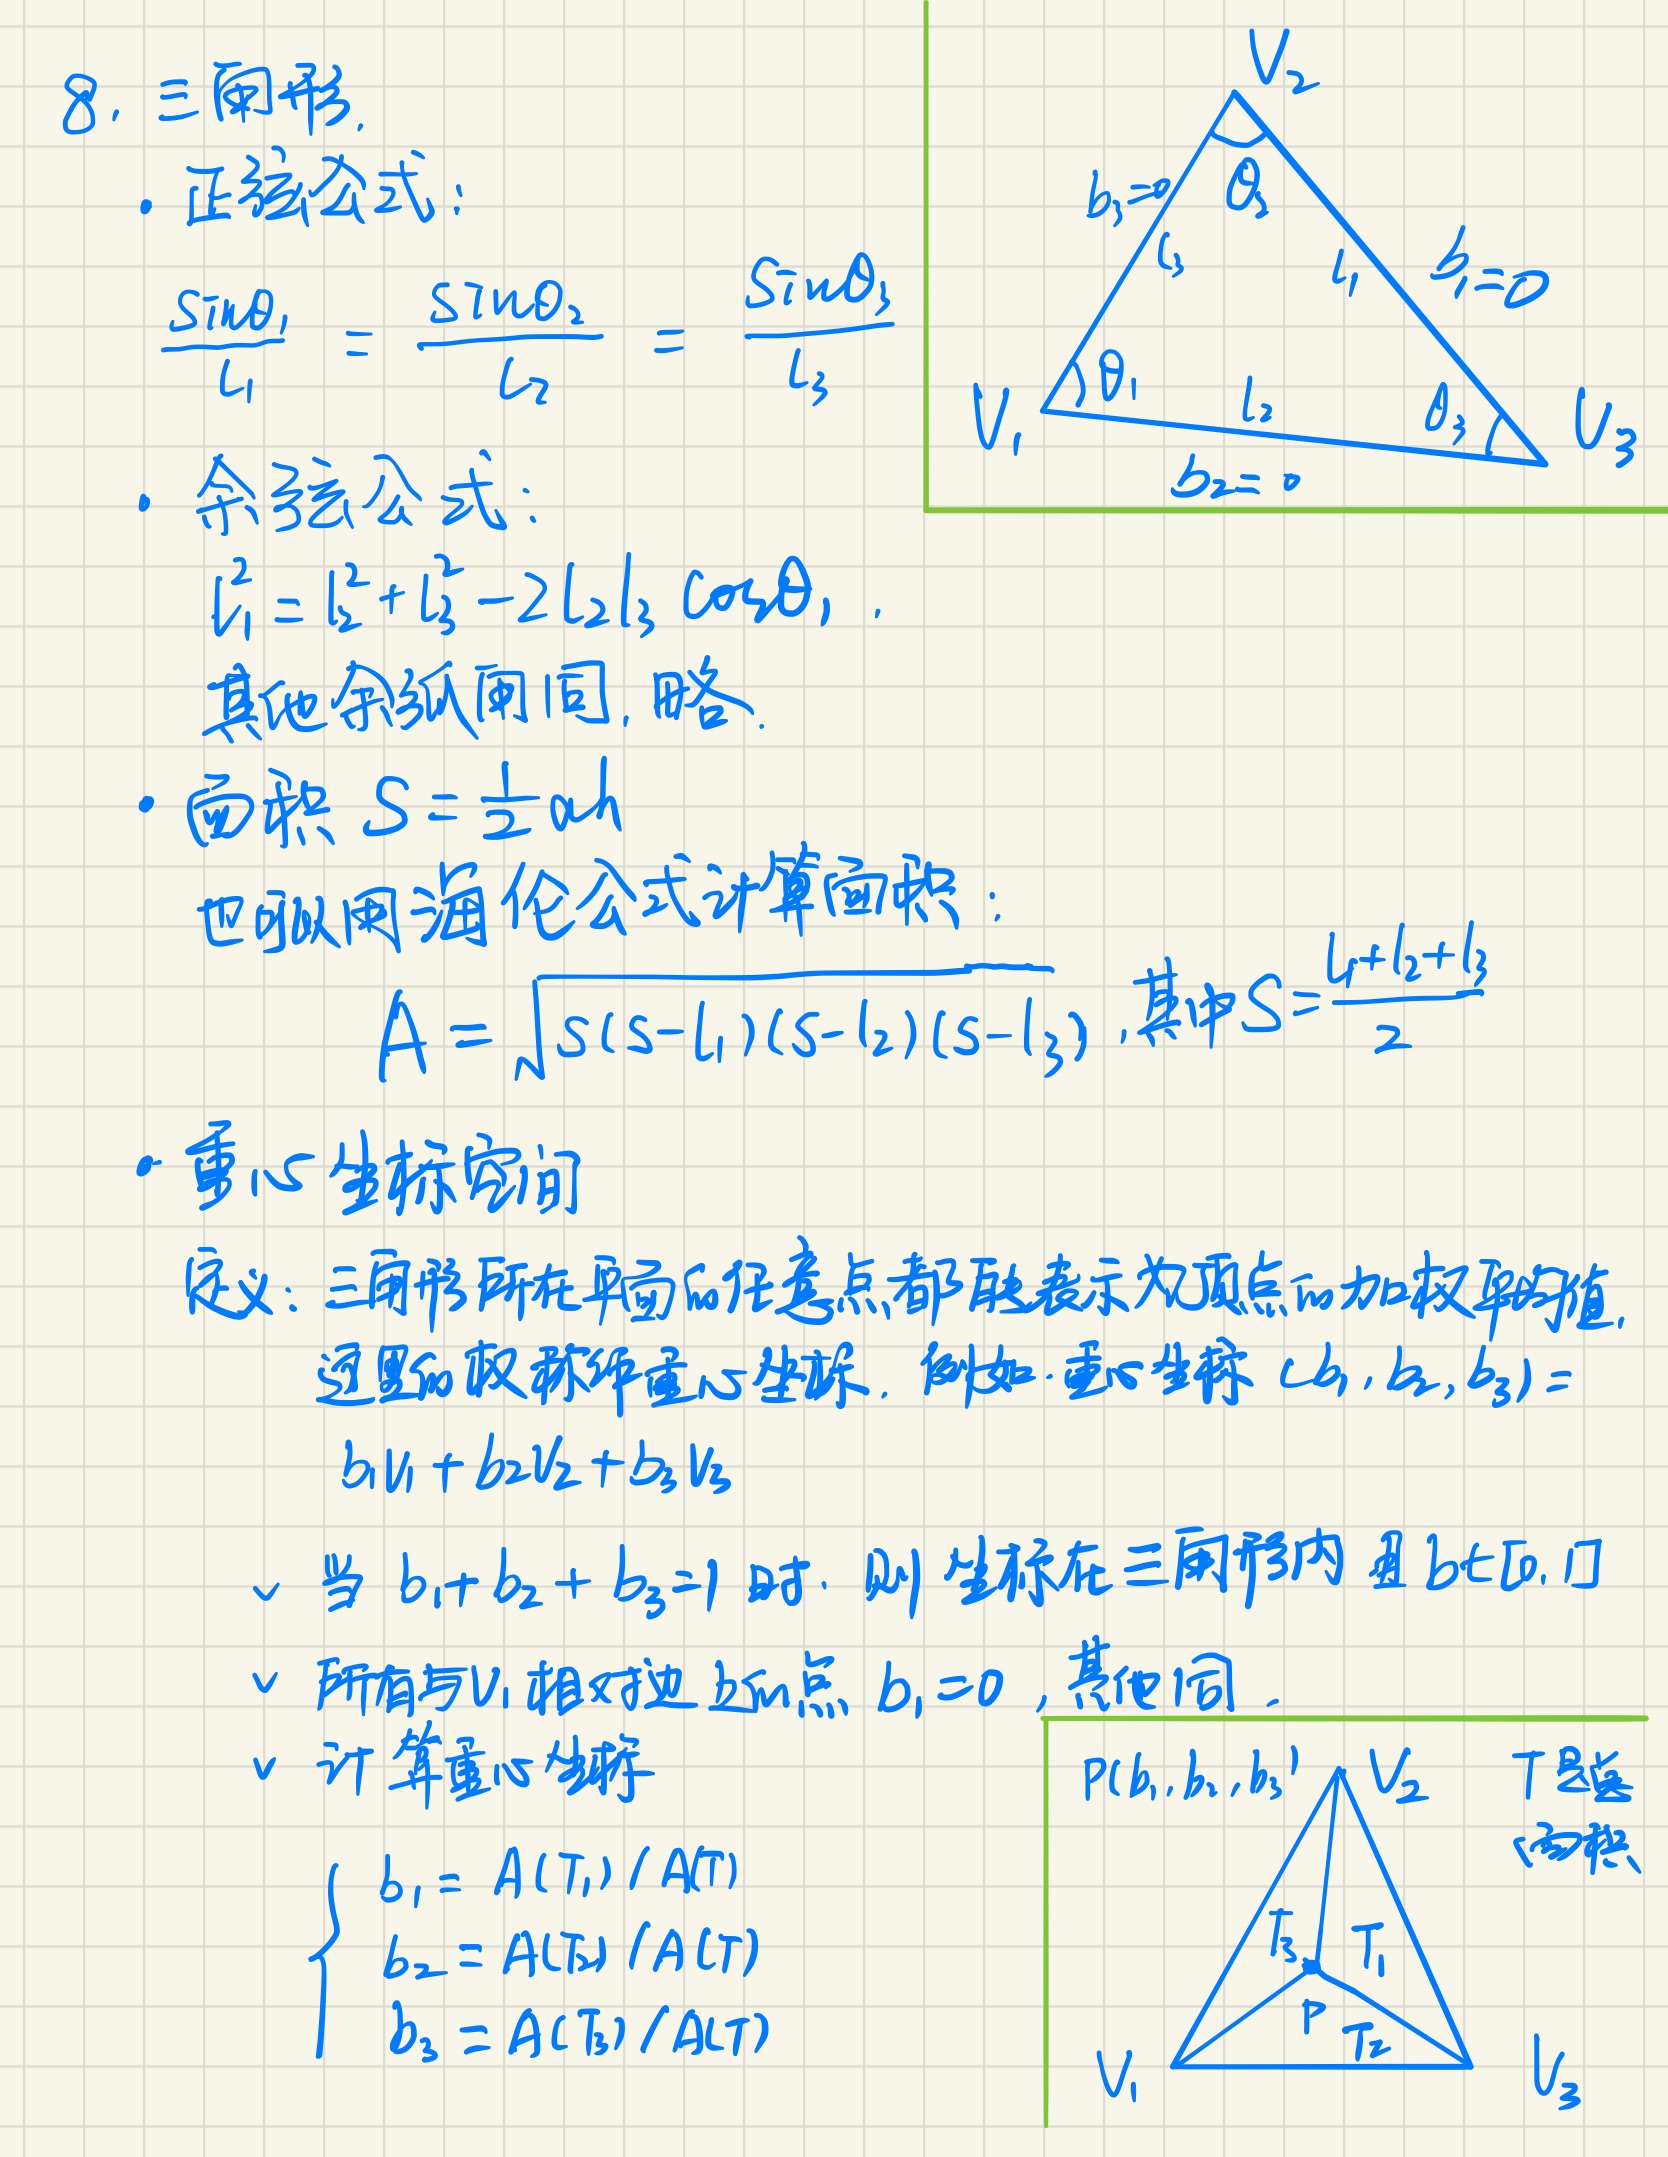 8. 三角形.
· 正弦公式:
sinθ₁/l₁ = sinθ₂/l₂ = sinθ₃/l₃
· 余弦公式:
l₁² = l₂² + l₃² - 2l₂l₃ cosθ₁.
其他余弧角同, 略.
· 面积 S = 1/2 ah
也可以用海伦公式计算面积:
A = √s(s-l₁)(s-l₂)(s-l₃), 其中 S = (l₁+l₂+l₃)/2
· 重心坐标空间
定义: 三角形所在平面的任意点都能表示为顶点的加权平均值.
这里的权称作重心坐标. 例如. 重心坐标 (b₁, b₂, b₃) =
b₁V₁ + b₂V₂ + b₃V₃
∨ 当 b₁+b₂+b₃=1 时. 则坐标在三角形内 且 b∈[0,1]
∨ 所有与V₁相对边上的点 b₁=0, 其他同.
∨ 计算重心坐标
b₁ = A(T₁) / A(T)
b₂ = A(T₂) / A(T)
b₃ = A(T₃) / A(T)
V₂
b₃=0
l₃
l₁
b₁=0
V₁
θ₁
l₂
θ₃
V₃
b₂=0
P(b₁, b₂, b₃)
V₂
T是总
面积
T₃
T₁
P
T₂
V₁
V₃